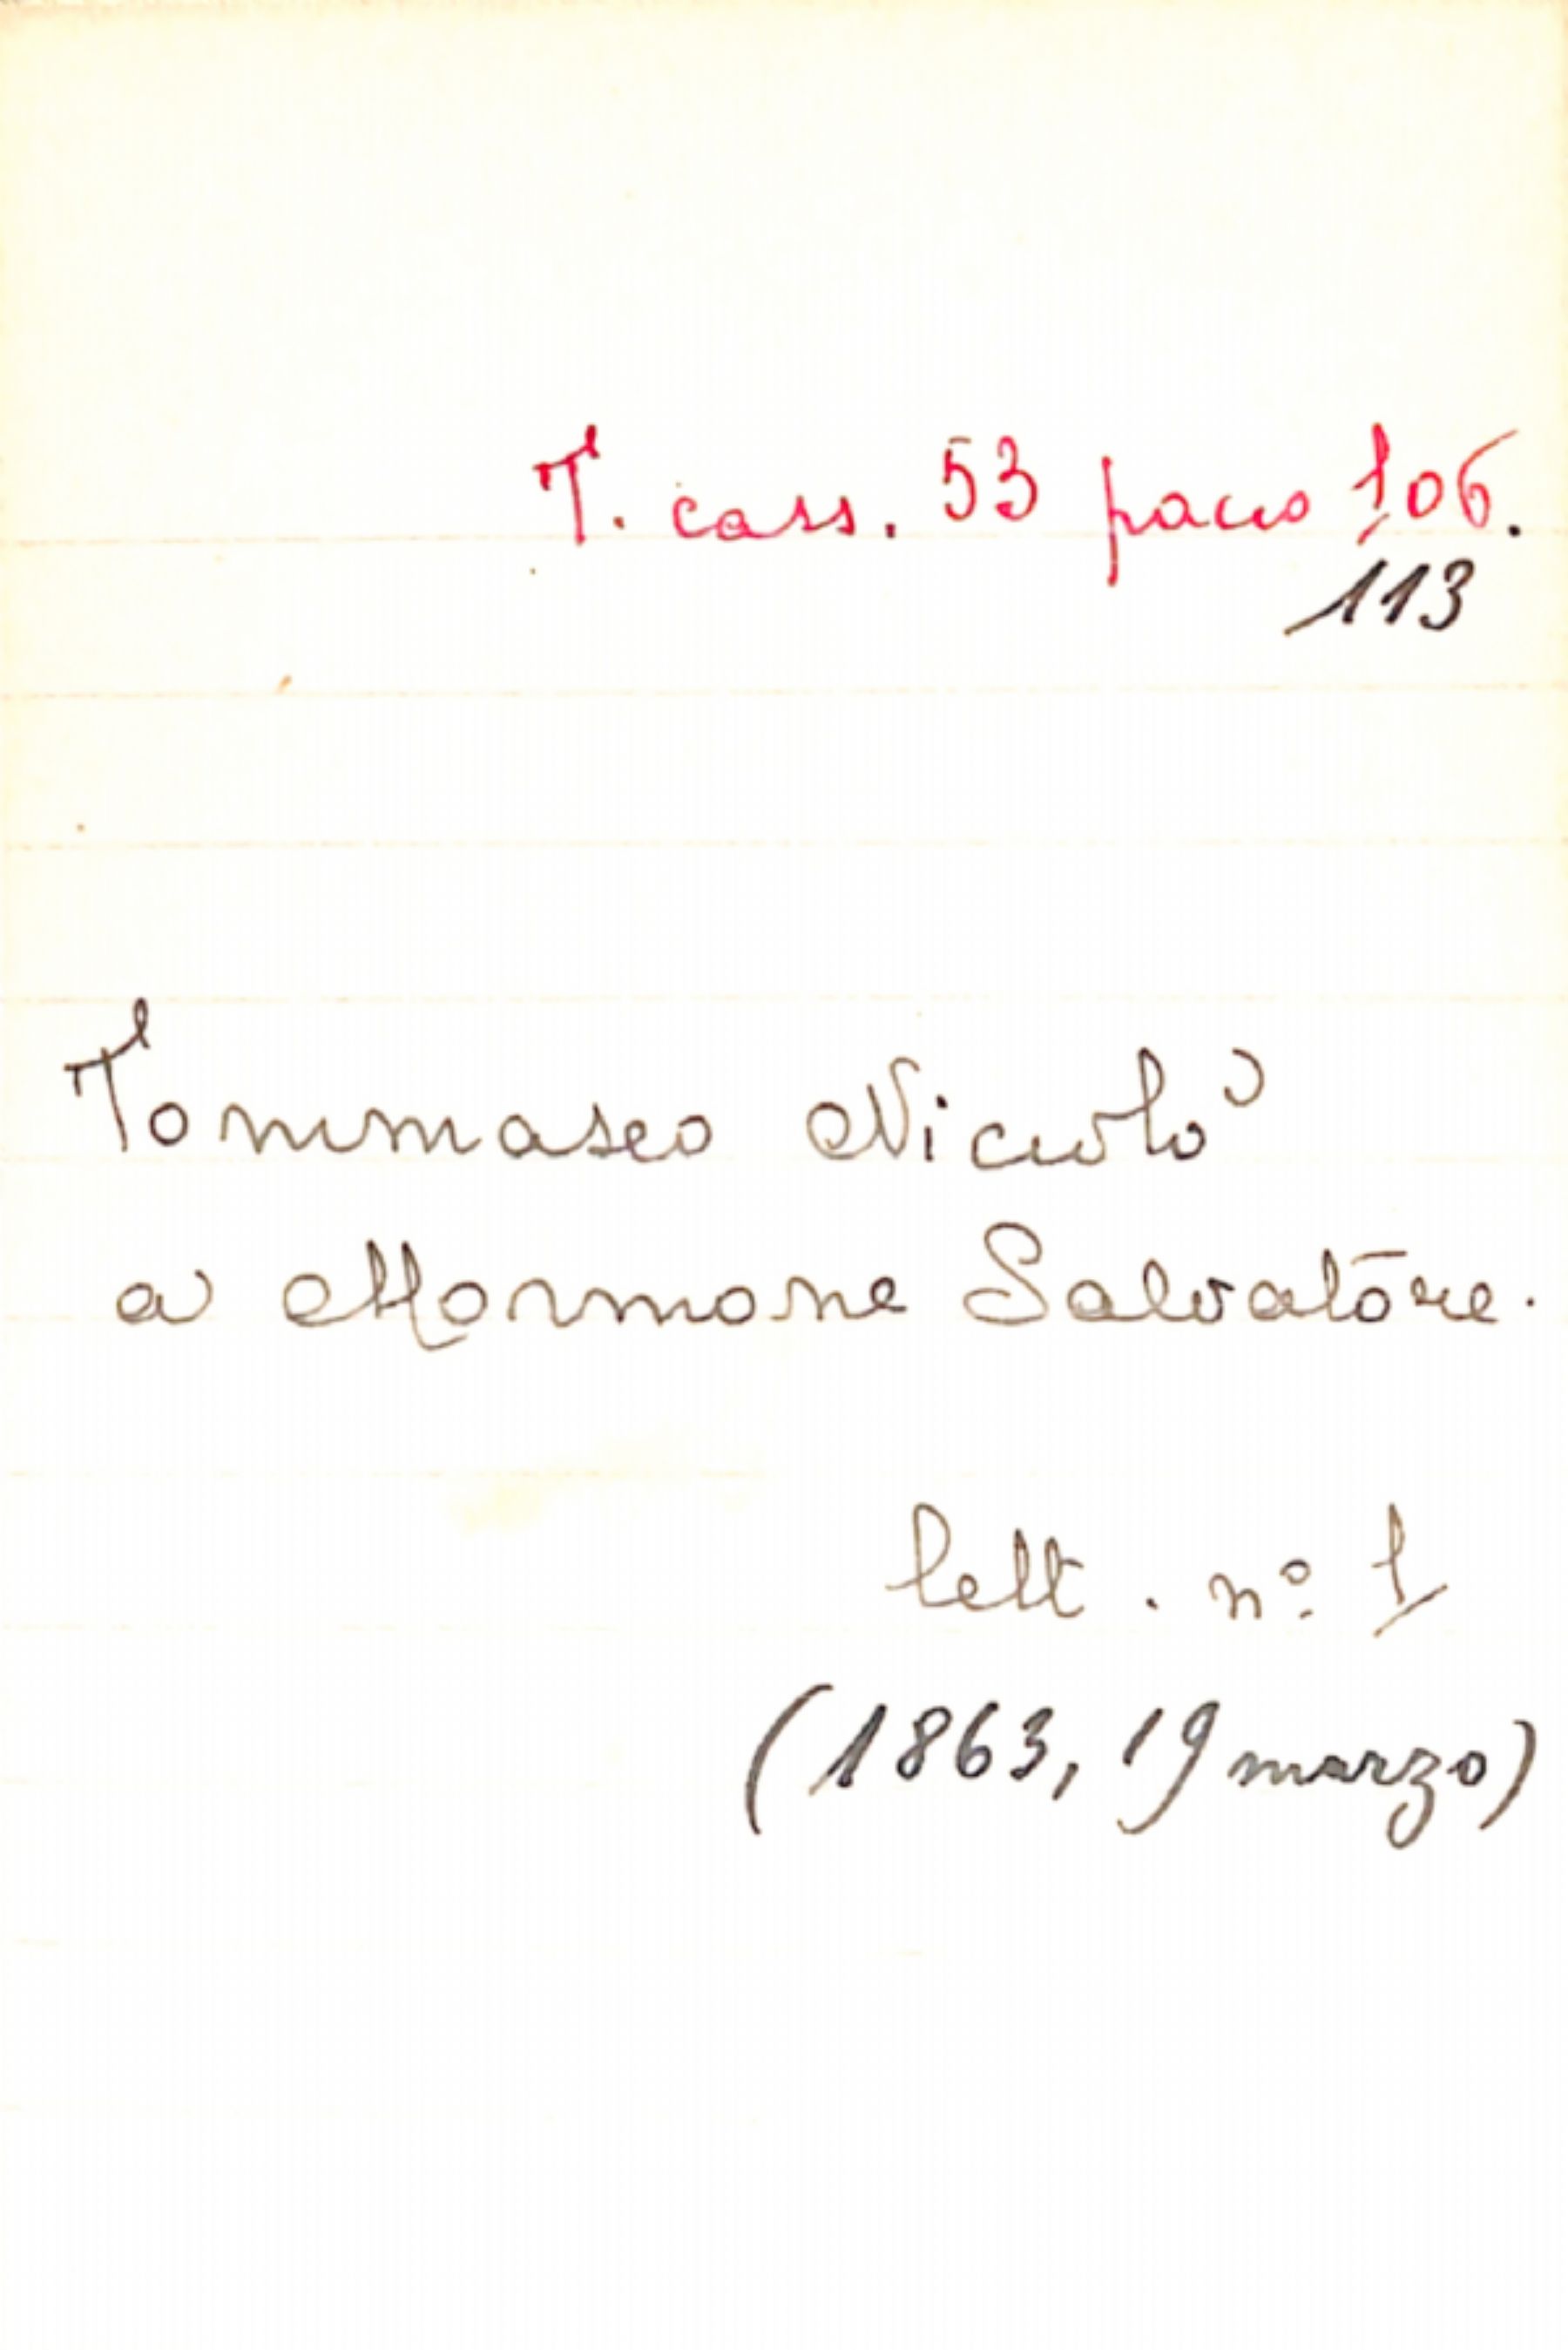 T. cass. 53 pacco 106.
113
Tommaseo Niccolò
a Mormone Salvatore.
lett. nº 1
(1863, 19 marzo)